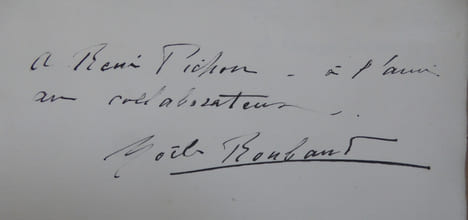 A René Pichon – à l'ami
au collaborateur.
Noële Roubaud